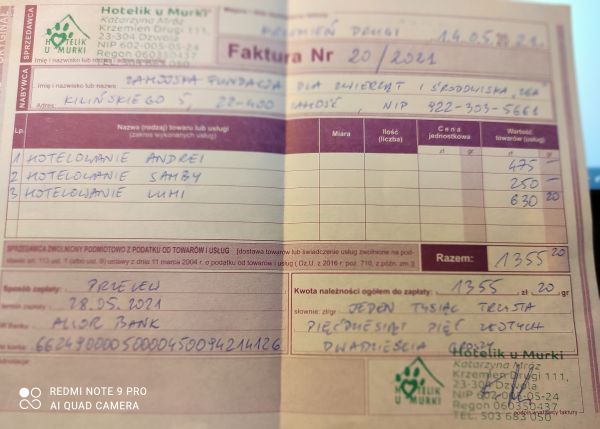 ORYGINAŁ
SPRZEDAWCA
Hotelik u Murki
Katarzyna Mróz
Krzemień Drugi 111,
23-304 Dzwola
NIP 602-005-05-24
Regon 060350437
TEL. 503 683 050
HOTELIK
U MURKI
KRZEMIEŃ DRUGI 14.05.2021
Faktura Nr 20/2021
NABYWCA
Imię i nazwisko lub nazwa: ZAMOJSKA FUNDACJA DLA ZWIERZĄT I ŚRODOWISKA
Adres: KILIŃSKIEGO 5, 22-400 ZAMOŚĆ, NIP 922-303-5661
Lp. Nazwa (rodzaj) towaru lub usługi Miara Ilość Cena Wartość
(zakres wykonanych usług) (liczba) jednostkowa towarów (usług)
zł gr zł gr
1 HOTELOWANIE ANDREI 475 —
2 HOTELOWANIE SAMBY 250 —
3 HOTELOWANIE LUMI 630 20
SPRZEDAWCA ZWOLNIONY PODMIOTOWO Z PODATKU OD TOWARÓW I USŁUG (dostawa towarów lub świadczenie usług zwolnione na pod-
stawie art. 113 ust. 1 (albo ust. 9) ustawy z dnia 11 marca 2004 r. o podatku od towarów i usług (Dz.U. z 2016 r. poz. 710, z późn. zm.)) Razem: 1355 20
Sposób zapłaty: PRZELEW
termin zapłaty 28.05.2021
w Banku ALIOR BANK
nr konta: 66249000050000450094214126
Kwota należności ogółem do zapłaty: 1355 zł 20 gr
słownie: zł/gr JEDEN TYSIĄC TRZYSTA
PIĘĆDZIESIĄT PIĘĆ ZŁOTYCH
DWADZIEŚCIA GROSZY
Hotelik u Murki
Katarzyna Mróz
Krzemień Drugi 111,
23-304 Dzwola
Regon 060350437
TEL. 503 683 050
HOTELIK
U MURKI
REDMI NOTE 9 PRO
AI QUAD CAMERA